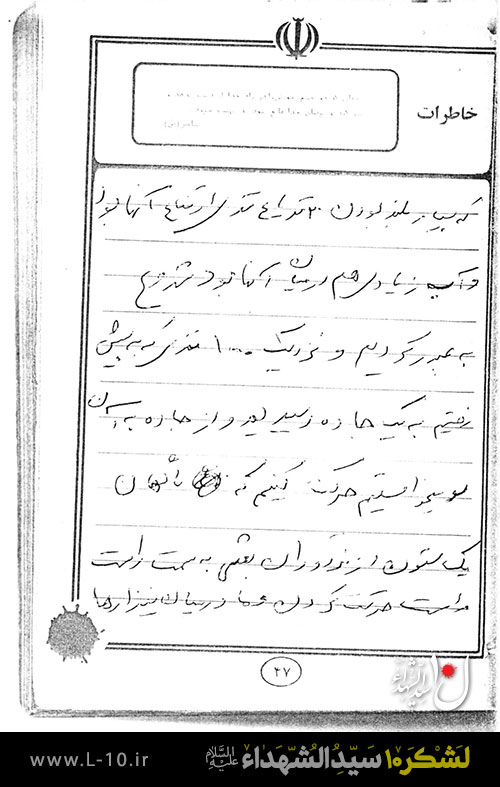 خاطرات
که بسیار بلند بودن ۲۰ تا متری ارتفاع آنها بود
و آب زیادی هم در میان آنها بود شروع
به عبور کردیم و نزدیک ۱۰۰ متری که به پیش
رفتیم به یک جاده رسیدیم و از جاده به آن
سو میخواستیم حرکت کنیم که ناگهان
یک ستون از مزدوران بعثی به سمت راست
حرکت کردن و ما در میان نیزارها
۲۷
لشکر۱۰ سیدالشهداء علیه السلام
www.L-10.ir